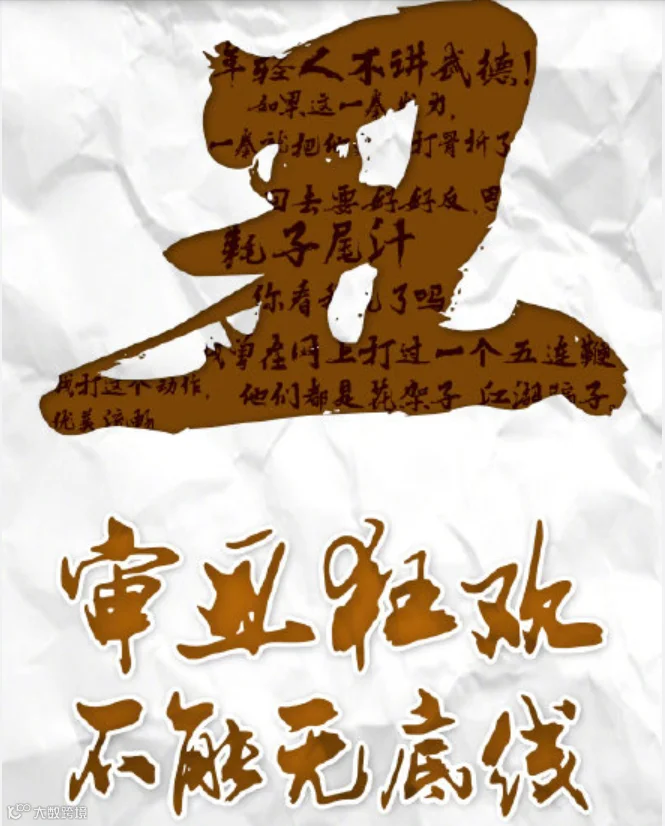 丑
年轻人不讲武德!
如果这一拳发力,
一拳就把他 打骨折了
回去要好好反思
耗子尾汁
你看我 了吗
我曾在网上打过一个五连鞭
我打这个动作, 他们都是花架子 江湖骗子,
优美流畅
审丑狂欢
不能无底线
大数跨境